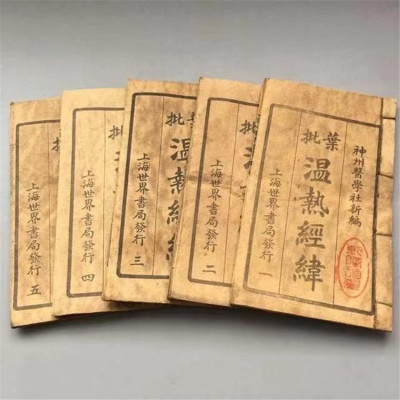 神州醫學社新編
葉批
温熱經緯
上海世界書局發行 一
批
温
上海世界書局發行 二
批
温熱經緯
上海世界書局發行 三
批
上海世界書局發行 四
批
上海世界書局發行 五